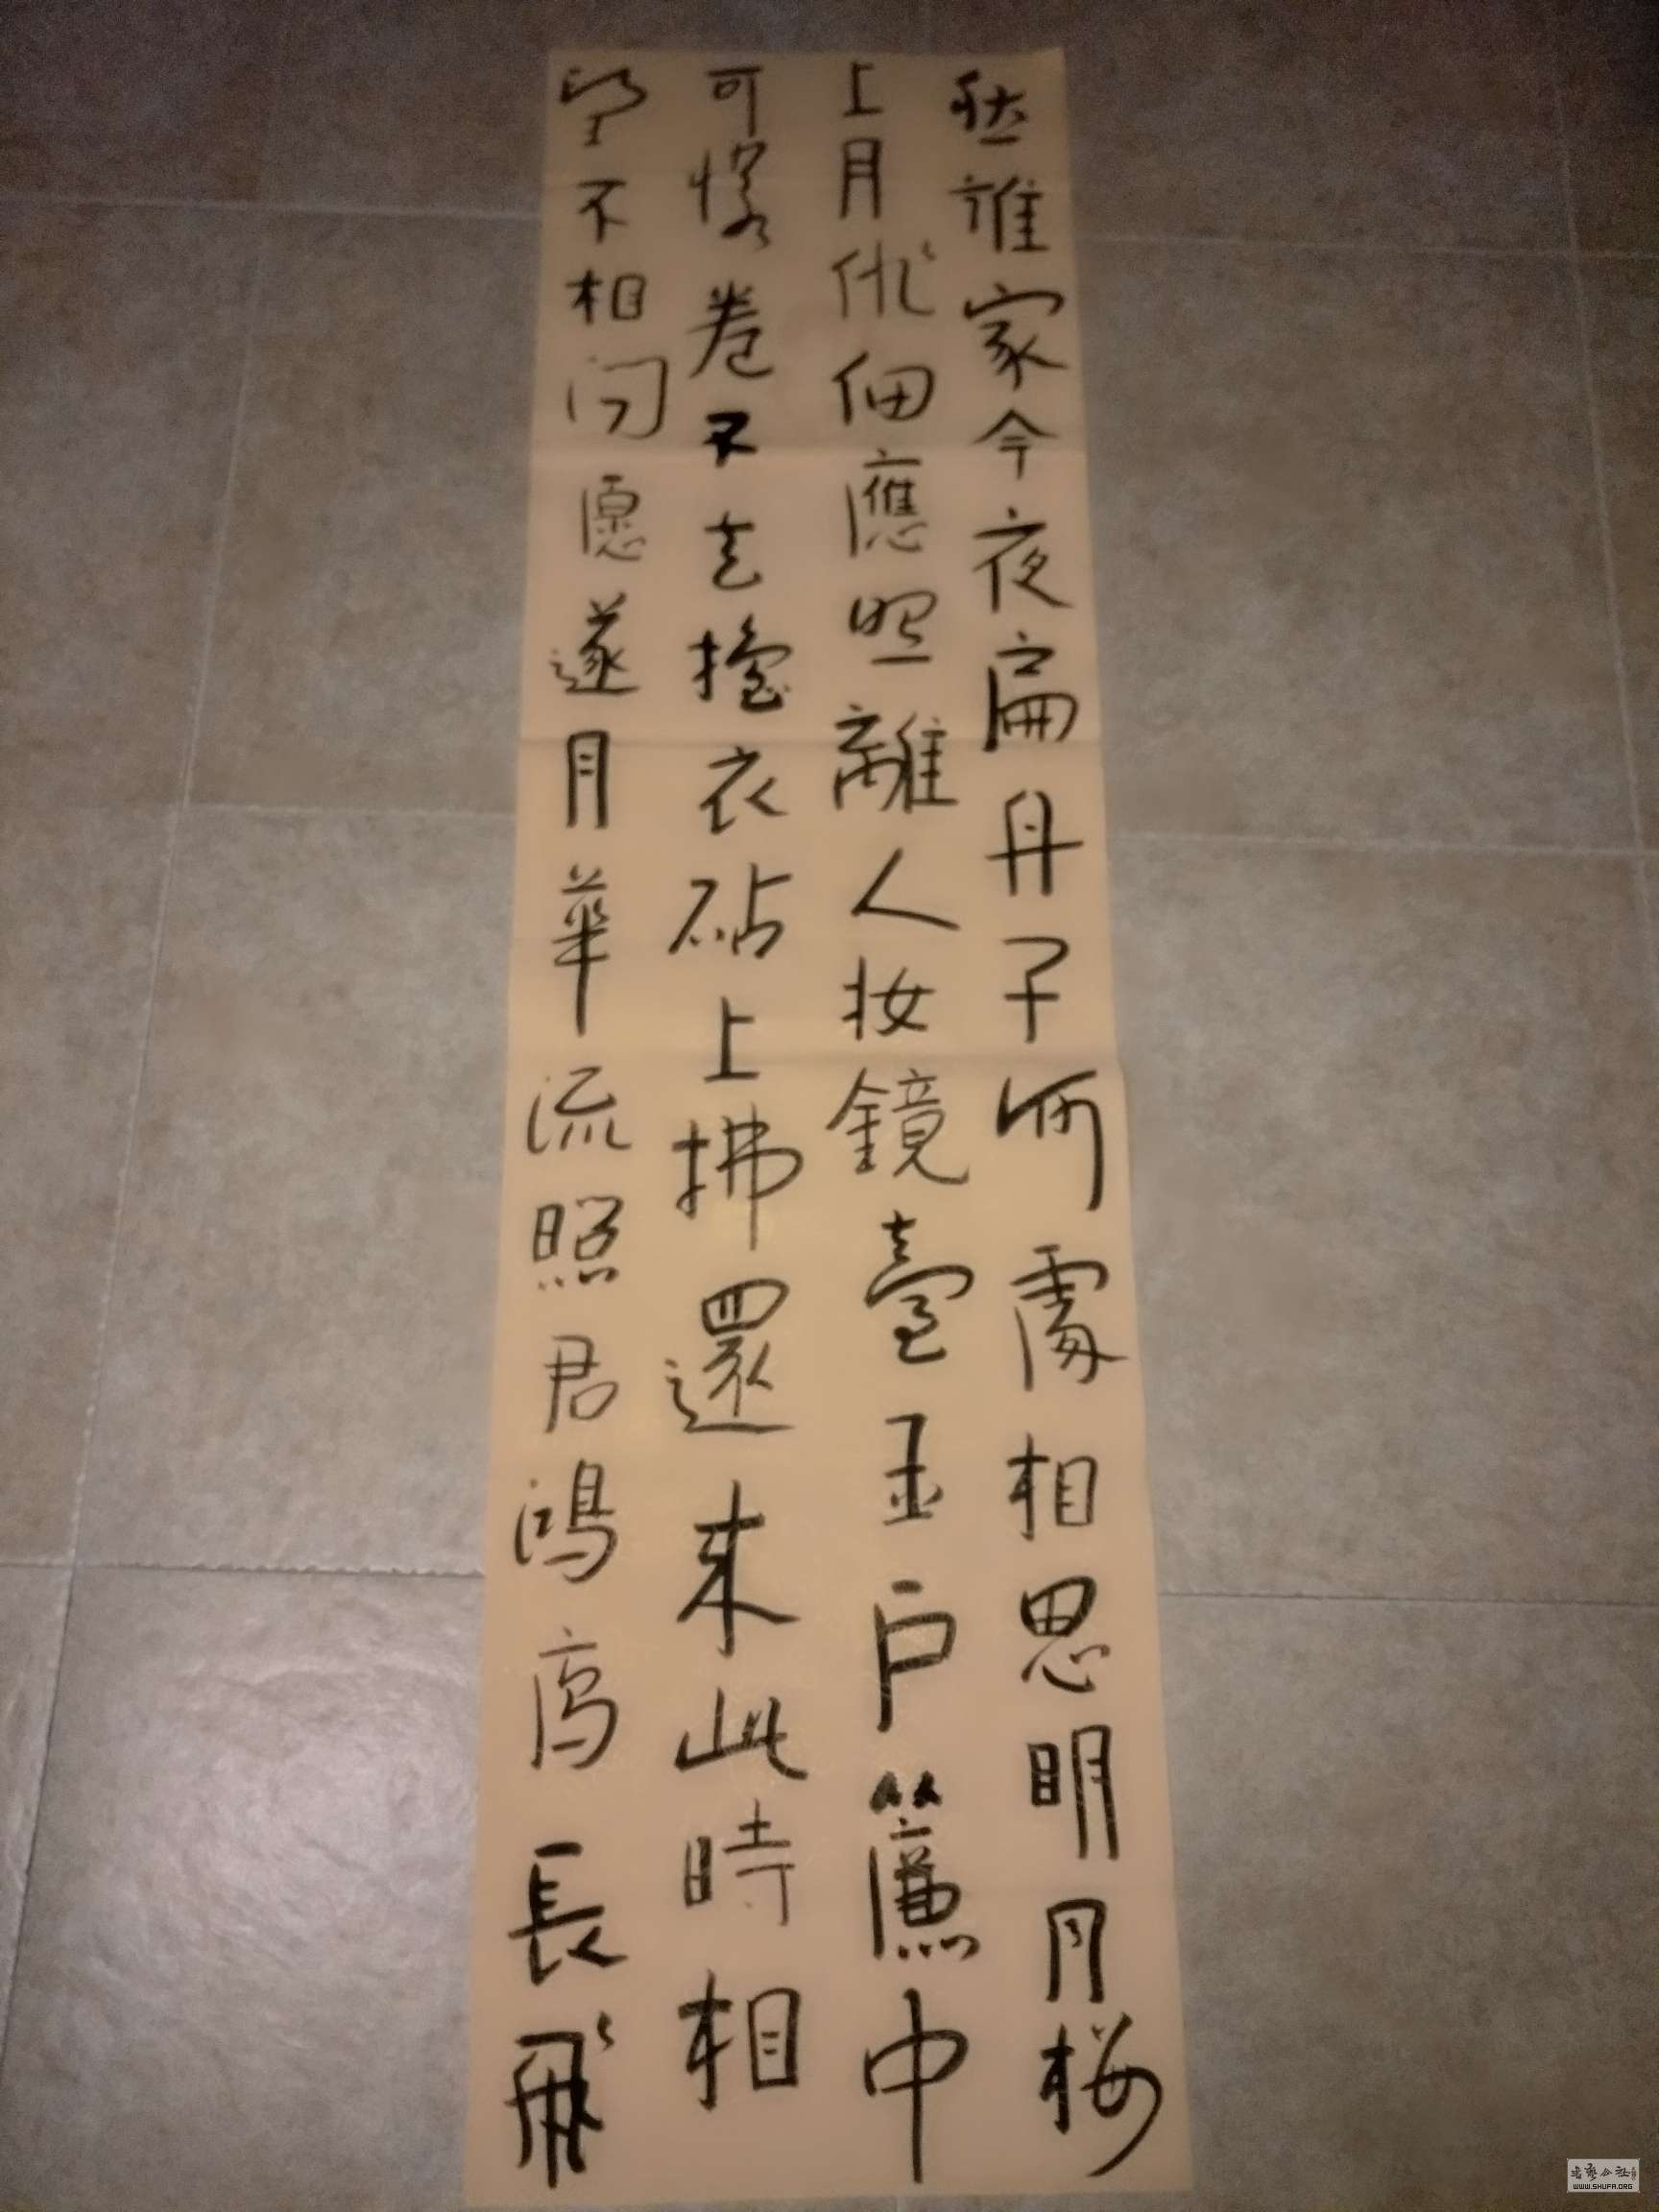 愁誰家今夜扁舟子何處相思明月樓
上月俳佪應照離人妆鏡臺玉戶簾中
可憐卷不去擣衣砧上拂還来此時相
望不相闻愿遂月華流照君鴻雁長飛
書藝公社
WWW.SHUFA.ORG